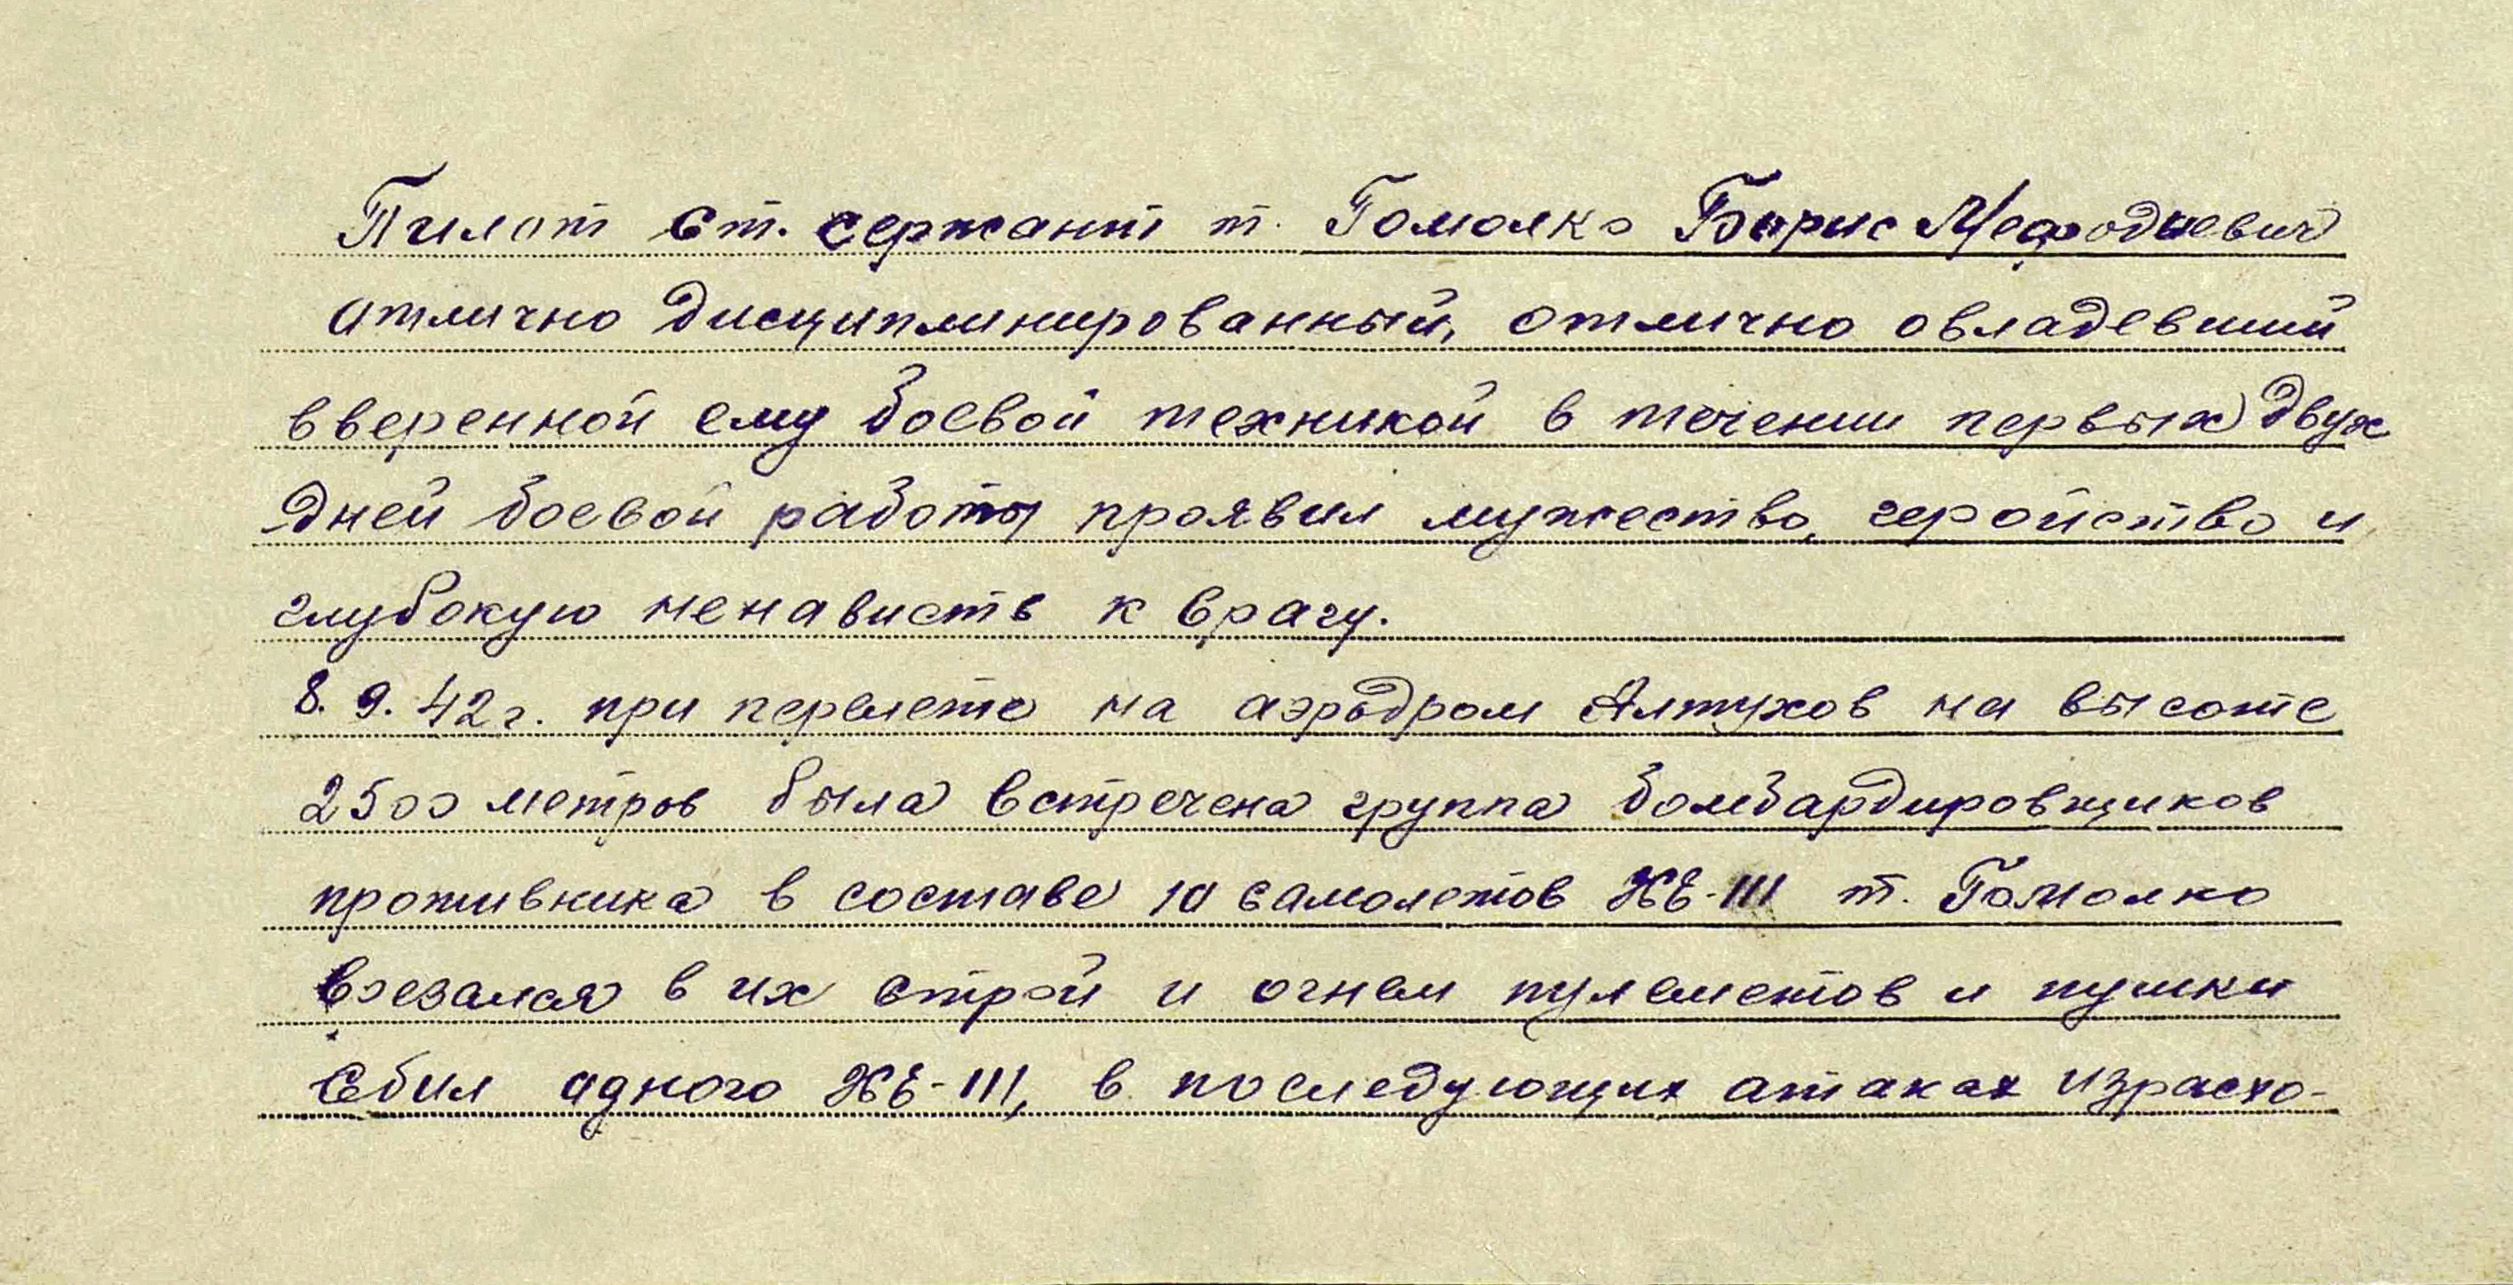 Пилот ст. сержант т. Гомолко Борис Мефодиевич
отлично дисциплинированный, отлично овладевший
вверенной ему боевой техникой в течении первых двух
дней боевой работы проявил мужество, геройство и
глубокую ненависть к врагу.
8. 9. 42 г. при перелете на аэродром Алтухов на высоте
2500 метров была встречена группа бомбардировщиков
противника в составе 10 самолетов ХЕ-111 т. Гомолко
врезался в их строй и огнем пулеметов и пушки
сбил одного ХЕ-111, в последующих атаках израсхо-